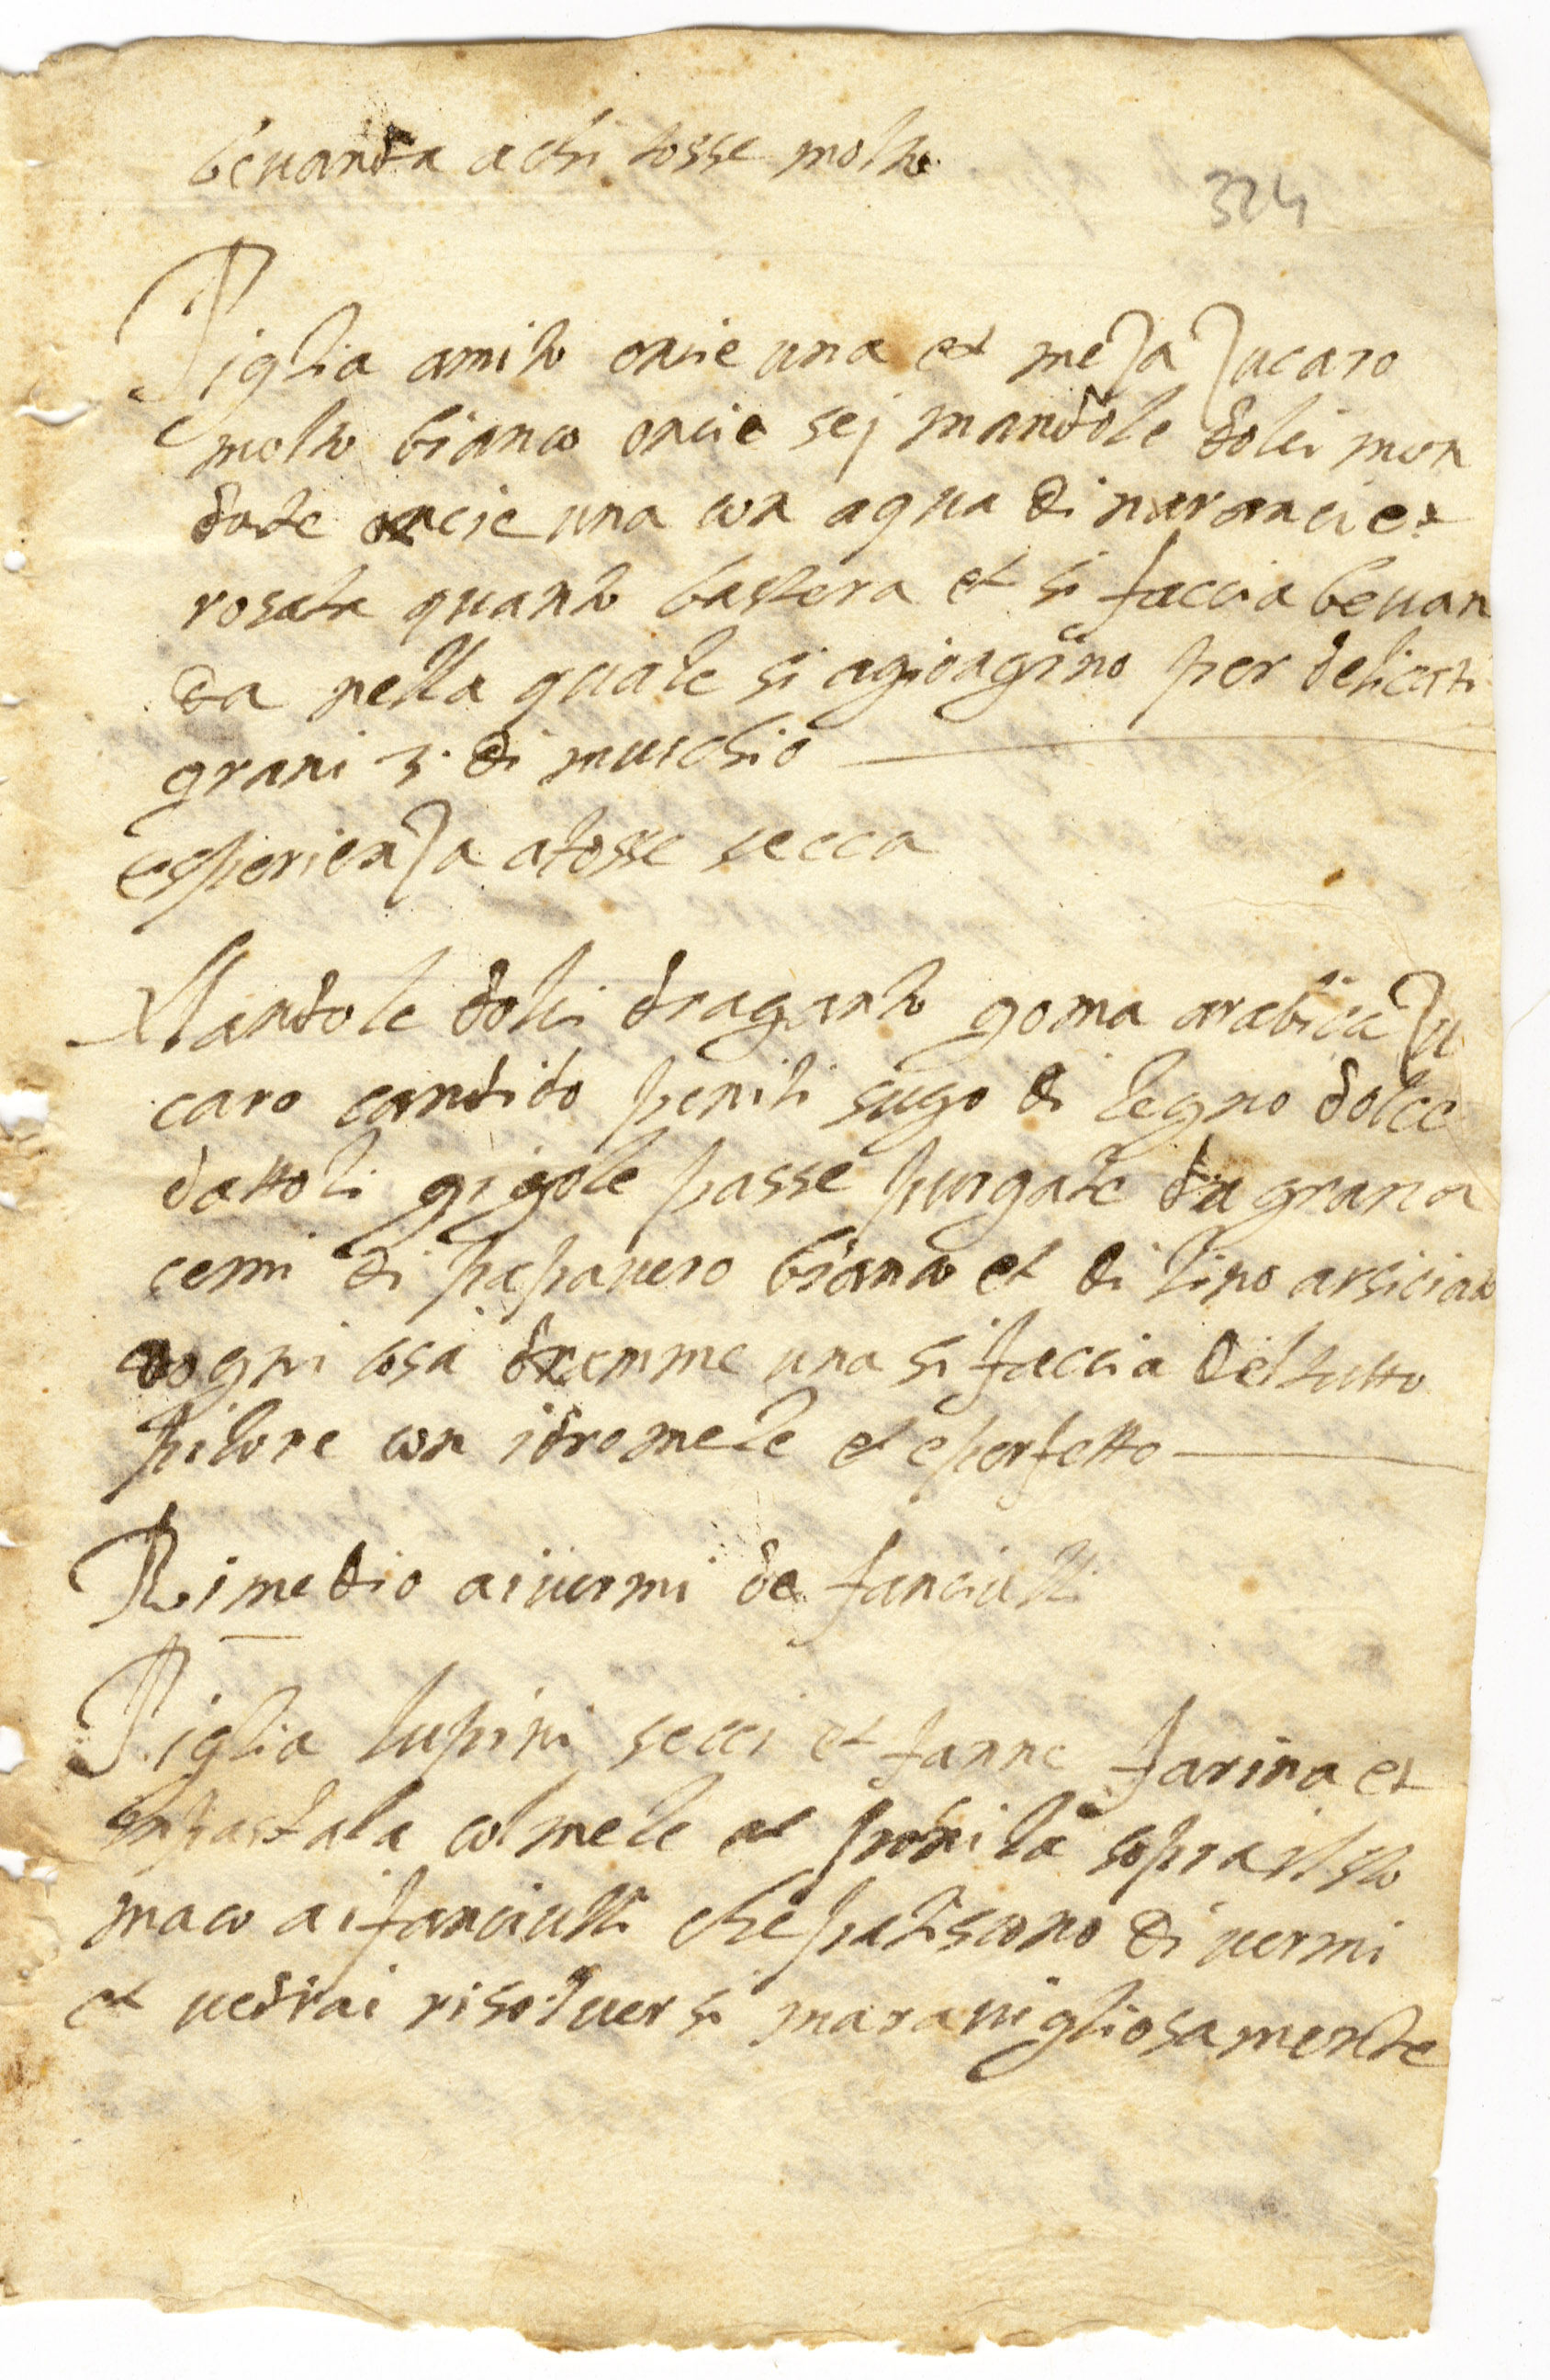 beuanda a chi tosse molto
324
Piglia amito oncie una et meza zucaro
molto bianco oncie sej mandole dolci mon
date oncie una con aqua di narancie et
rosata quanto bastera et si faccia beuan
da nella quale si agiongino per delicati
grani 3. di muschio
esperienza a tosse secca
Mandole dolci draganto goma arabica zu
caro candido peniti sugo di legno dolce
dattoli gigole passe purgate da grana
semi di papauero bianco et di lino arsiciato
ogni cosa dramme una si faccia del tutto
pilore con idromele et e perfetto
Rimedio ai uermi de fanciulli
Piglia lupini secci et fanne farina et
inpastala col mele et ponila sopra il sto
maco ai fanciulli che patiscono di uermi
et uedrai risoluersi marauigliosamente